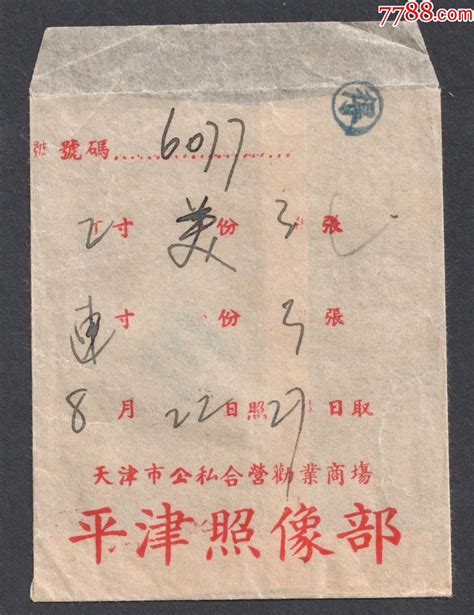 7788.com
號碼 6077
2寸 美 份 3張
連寸 份 3張
8月22日照27日取
天津市公私合營勸業商場
平津照像部